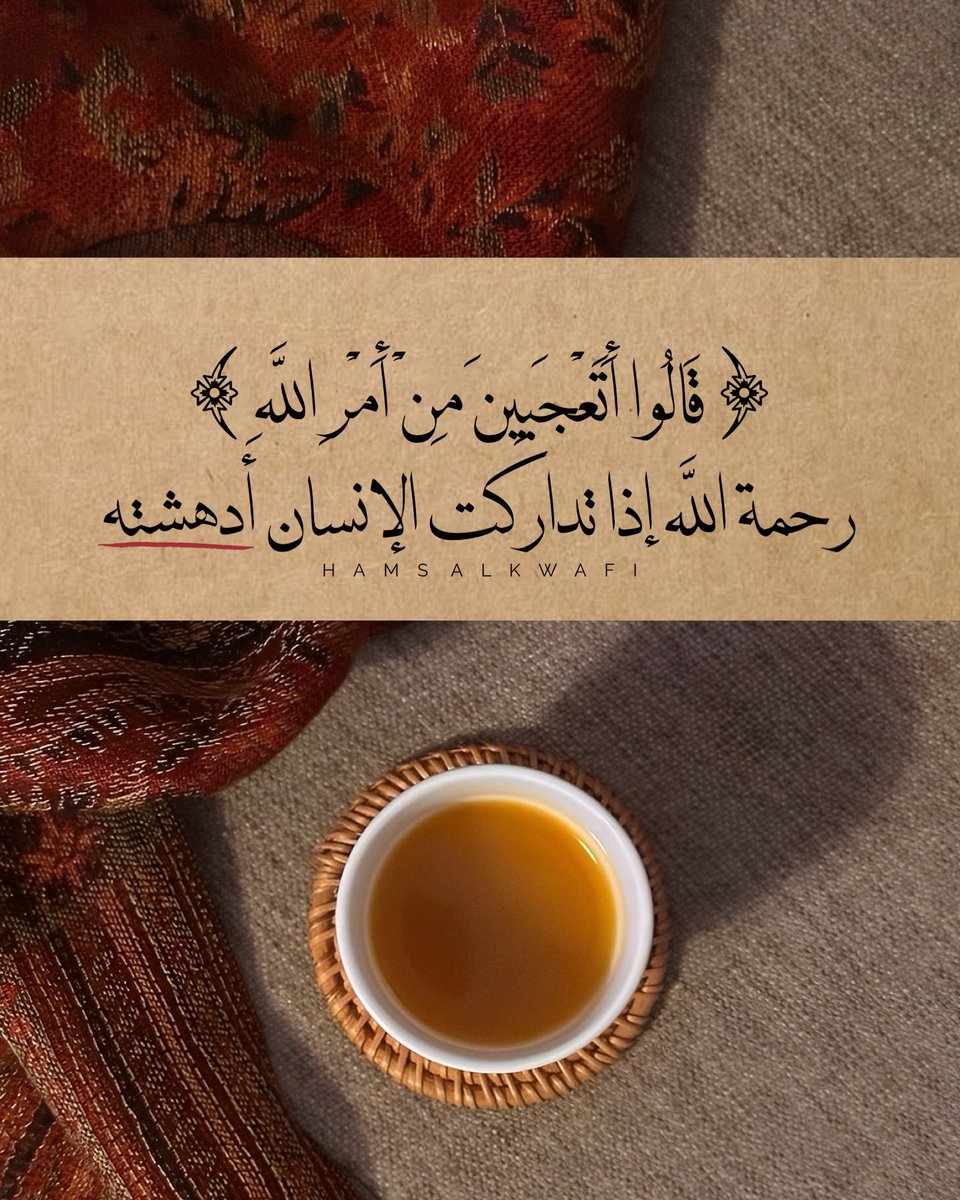 ﴿ قَالُوا أَتَعْجَبِينَ مِنْ أَمْرِ اللَّهِ ﴾
رحمة اللَّه إذا تداركت الإنسان أدهشته
HAMSALKWAFI